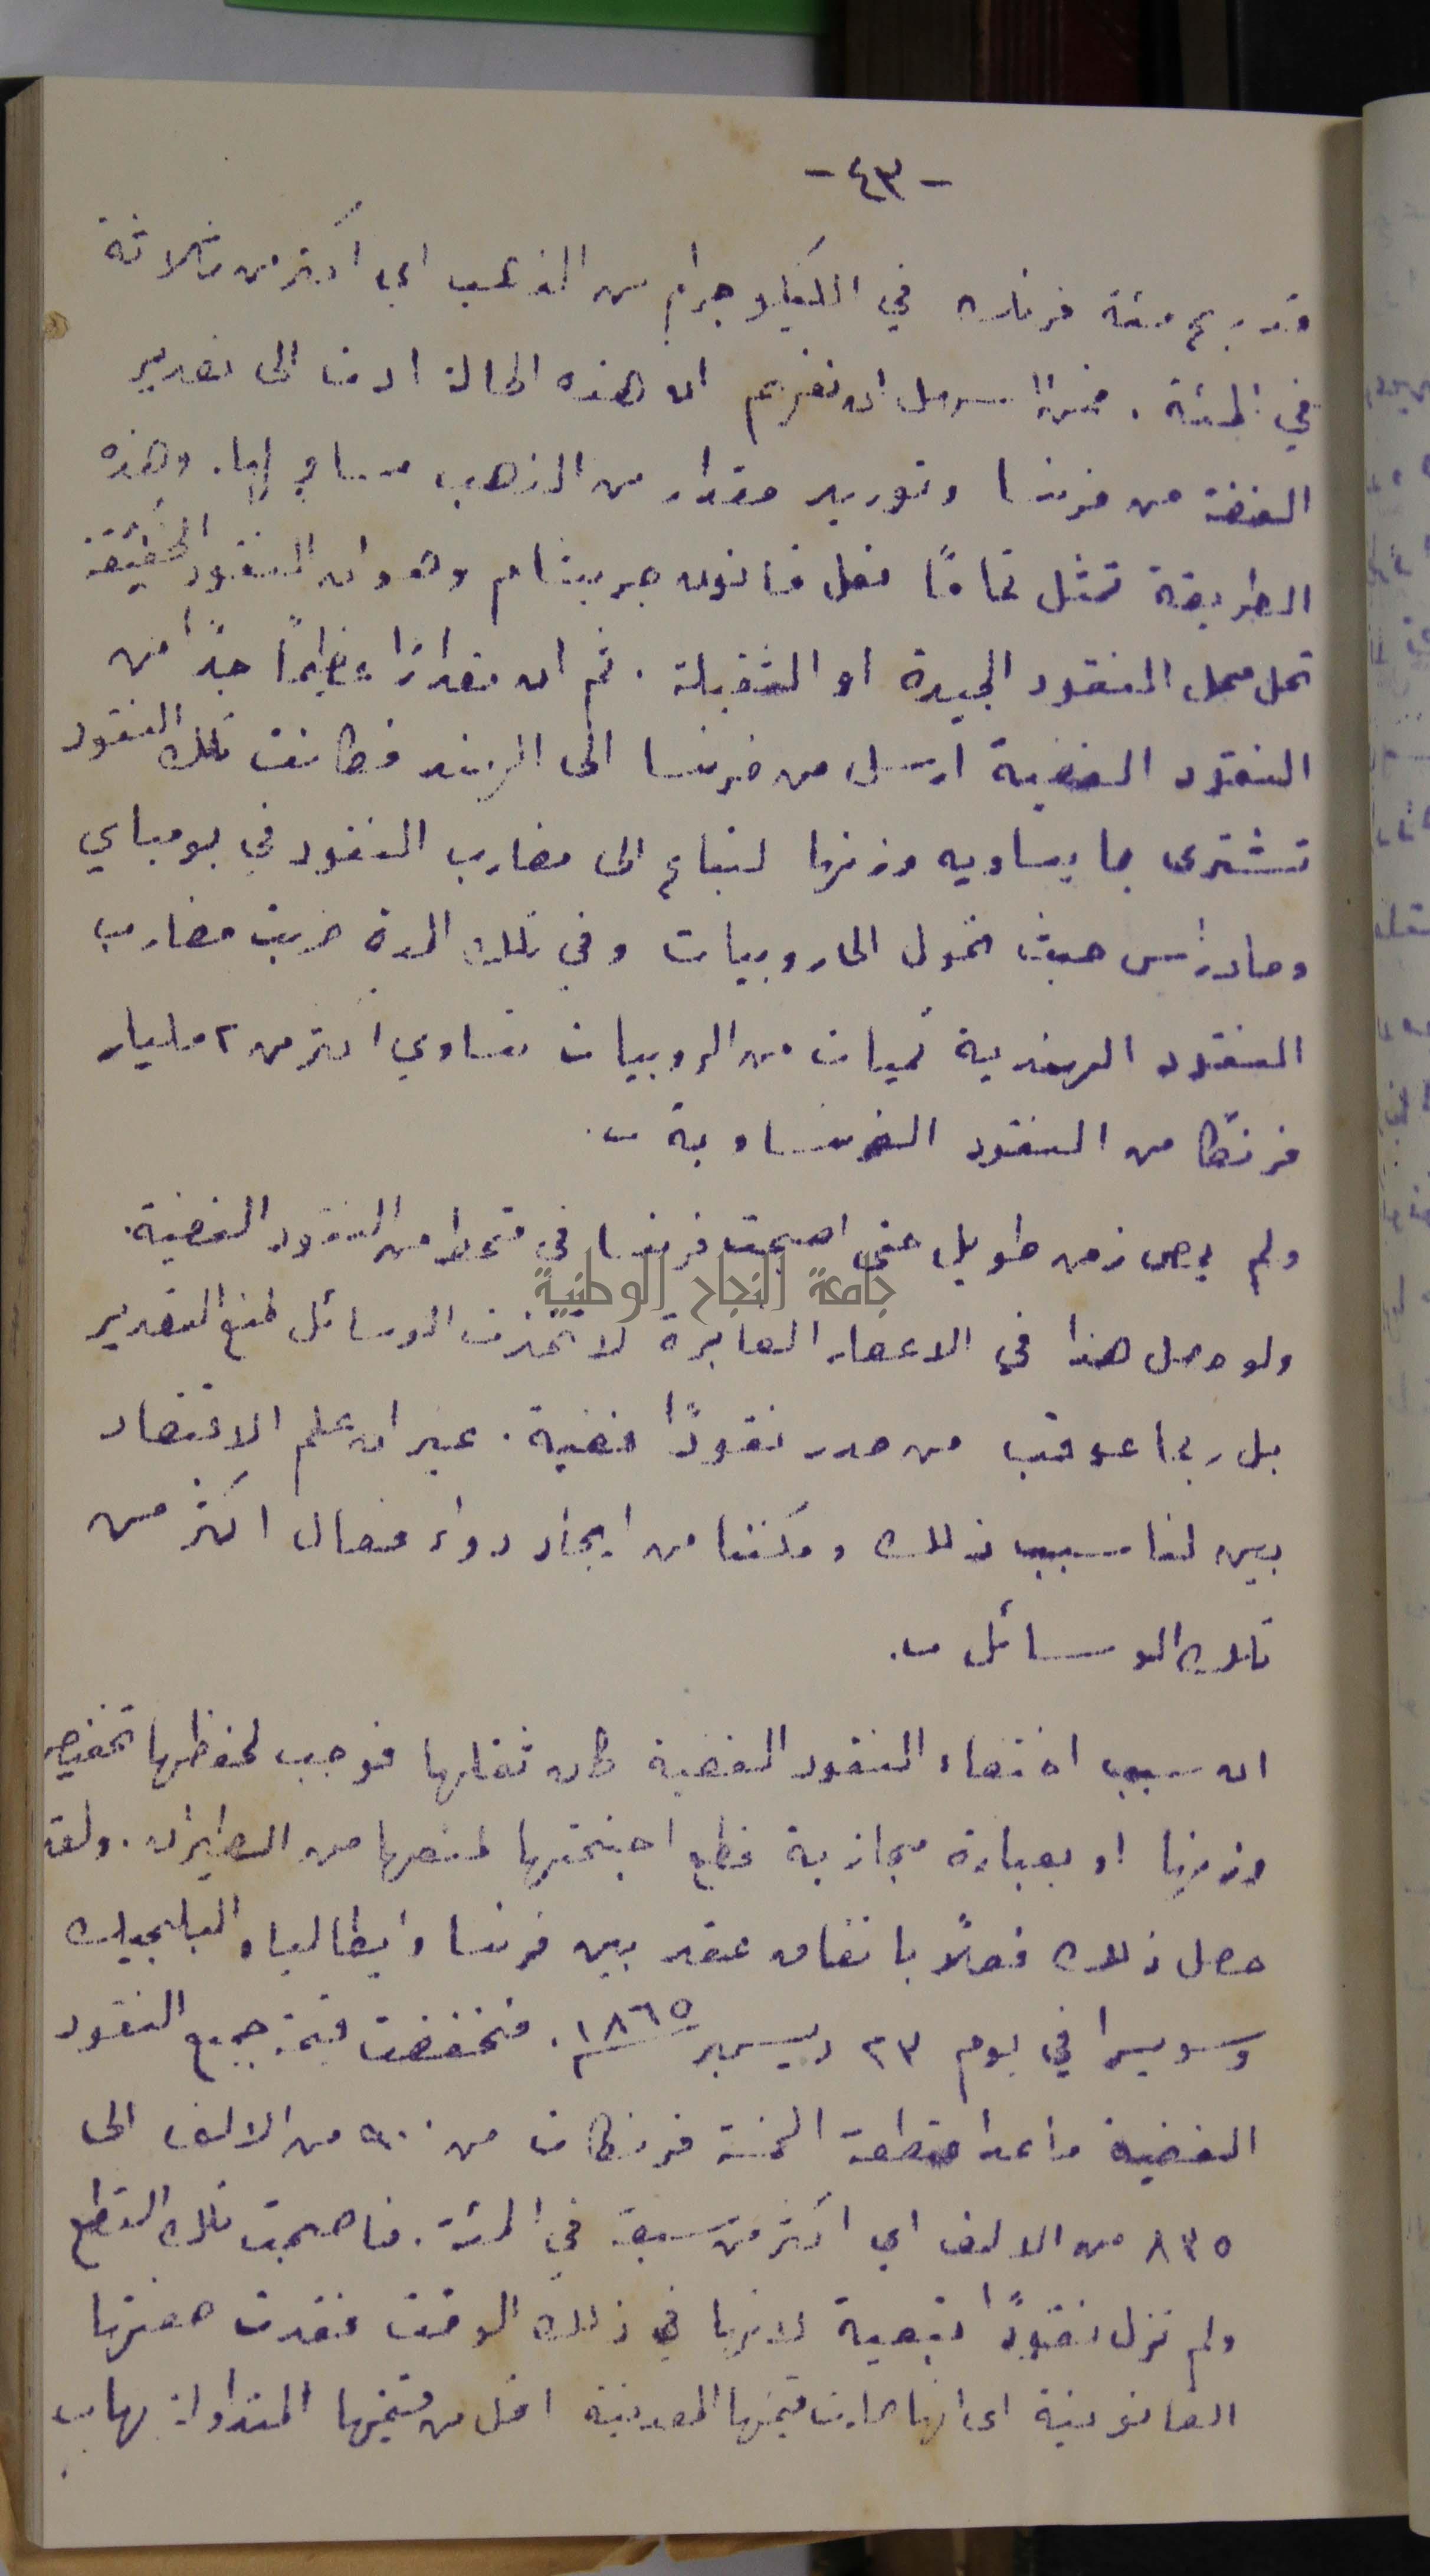 -٤٣-
قد ربح مئة فرنك في الكيلو جرام من الذهب اي اكثر من ثلاثة
في المئة . فمن السهل ان نفهم ان هذه الحالة ادت الى تصدير
الفضة من فرنسا وتوريد مقدار من الذهب مساوٍ لها. وهذه
الطريقة تمثل تمامًا فعل قانون جريشام وهو ان النقود الخفيفة
تحل محل النقود الجيدة او الثقيلة . ثم ان مقدارًا عظيمًا جدًا من
النقود الفضية ارسل من فرنسا الى الهند فكانت تلك النقود
تشترى بما يساويه وزنها لتباع الى مضارب النقود في بومباي
ومادراس حيث تحول الى روبيات وفي تلك المدة ضربت مضارب
النقود الهندية كميات من الروبيات تساوي اكثر من ٢ مليار
فرنكا من النقود الفرنساوية .
ولم يمض زمن طويل حتى اصبحت فرنسا في قحط من النقود الفضية.
جامعة النجاح الوطنية
ولو حصل هذا في الاعصار الغابرة لاتخذت الوسائل لمنع التصدير
بل ربما عوقب من صدر نقودًا فضية . غير ان علم الاقتصاد
بين لنا سبب ذلك ومكننا من ايجاد دواء فعال اكثر من
تلك الوسائل .
ان سبب اختفاء النقود الفضية كان ثقلها فوجب لحفظها تخفيض
وزنها او بعبارة مجازية قطع اجنحتها لمنعها من الطيران . ولقد
حصل ذلك فعلًا باتفاق عقد بين فرنسا وايطاليا والبلجيك
وسويسرا في يوم ٢٣ ديسمبر ١٨٦٥ . فخفضت قيمة جميع النقود
الفضية ماعدا قطعة الخمسة فرنكات من ٩٠٠ من الالف الى
٨٣٥ من الالف اي اكثر من سبعة في المئة . فاصبحت تلك القطع
ولم تزل نقودًا تبعية لانها في ذلك الوقت فقدت صفتها
القانونية اى انها صارت قيمتها المعدنية اقل من قيمتها المتداولة بهاب